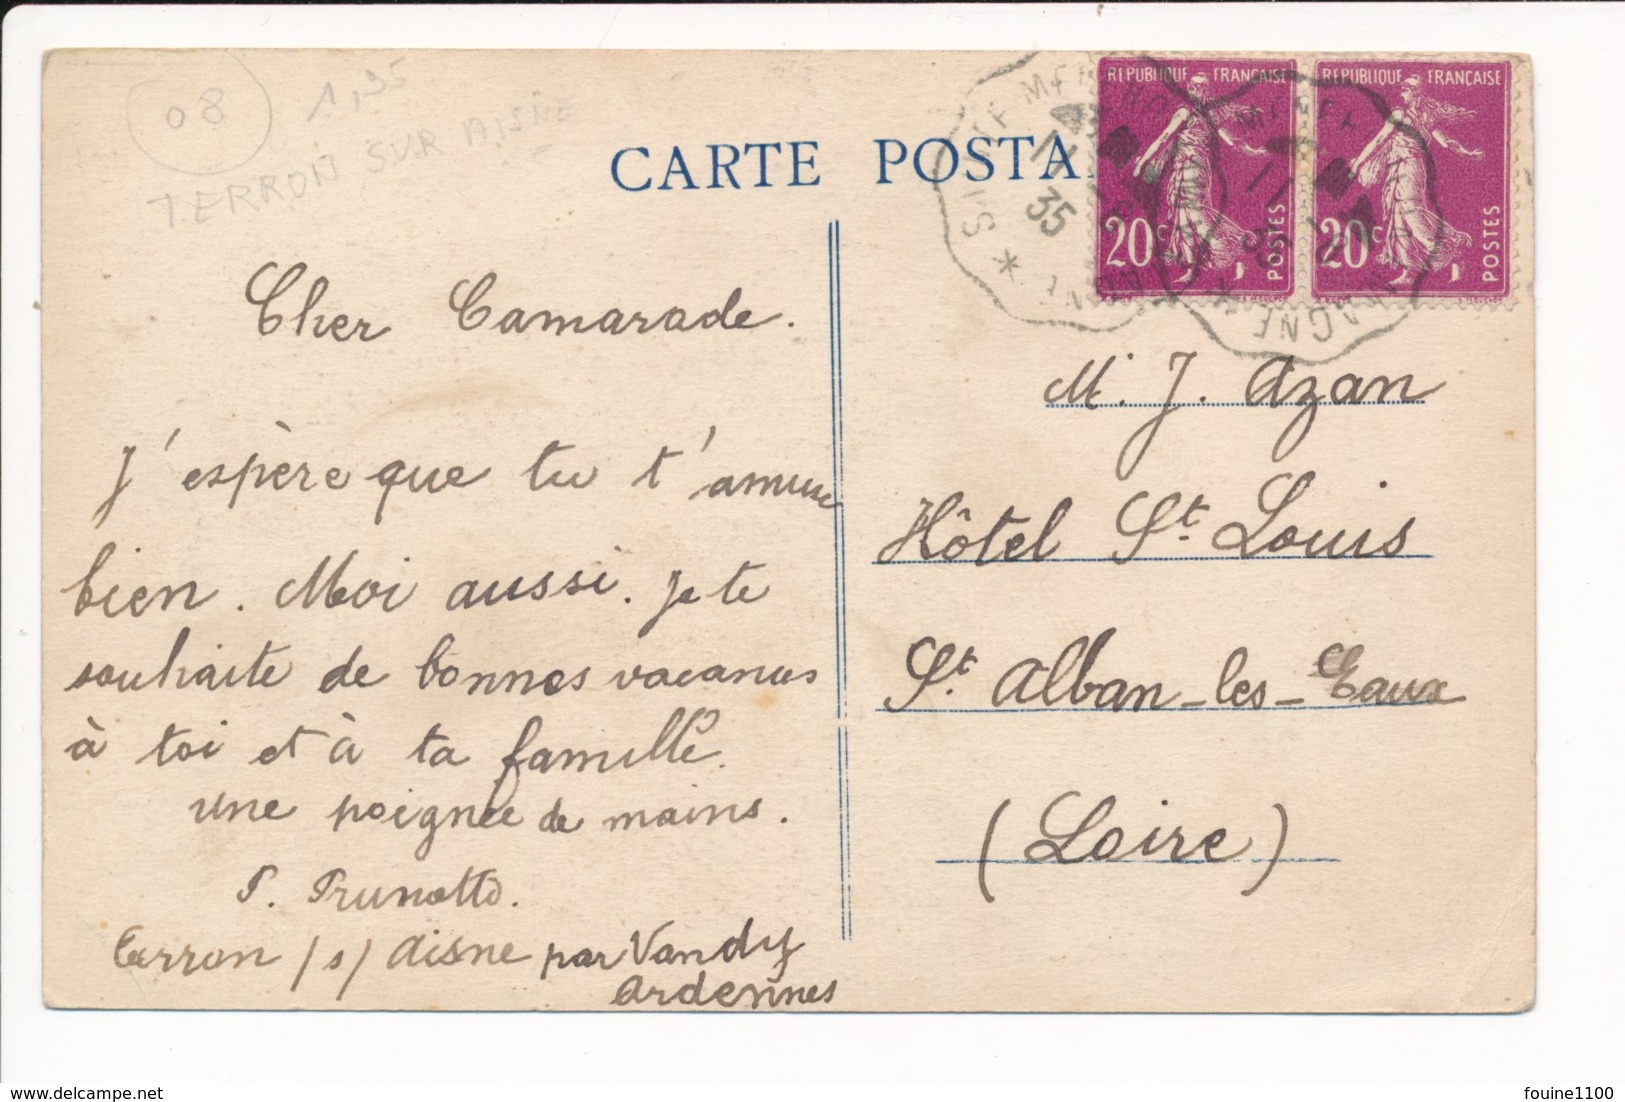 08
1,95
TERRON SUR AISNE
CARTE POSTA
REPUBLIQUE FRANÇAISE
20c
POSTES
REPUBLIQUE FRANÇAISE
20c
POSTES
STE MENEHO
11
35
Cher Camarade.
J'espère que tu t'amuse
bien. Moi aussi. Je te
souhaite de bonnes vacances
à toi et à ta famille.
une poignée de mains.
P. Prunotto.
Terron /s/ Aisne par Vandy
Ardennes
M. J. Azan
Hôtel St. Louis
St. Alban-les-Eaux
(Loire)
delcampe.net
fouine1100